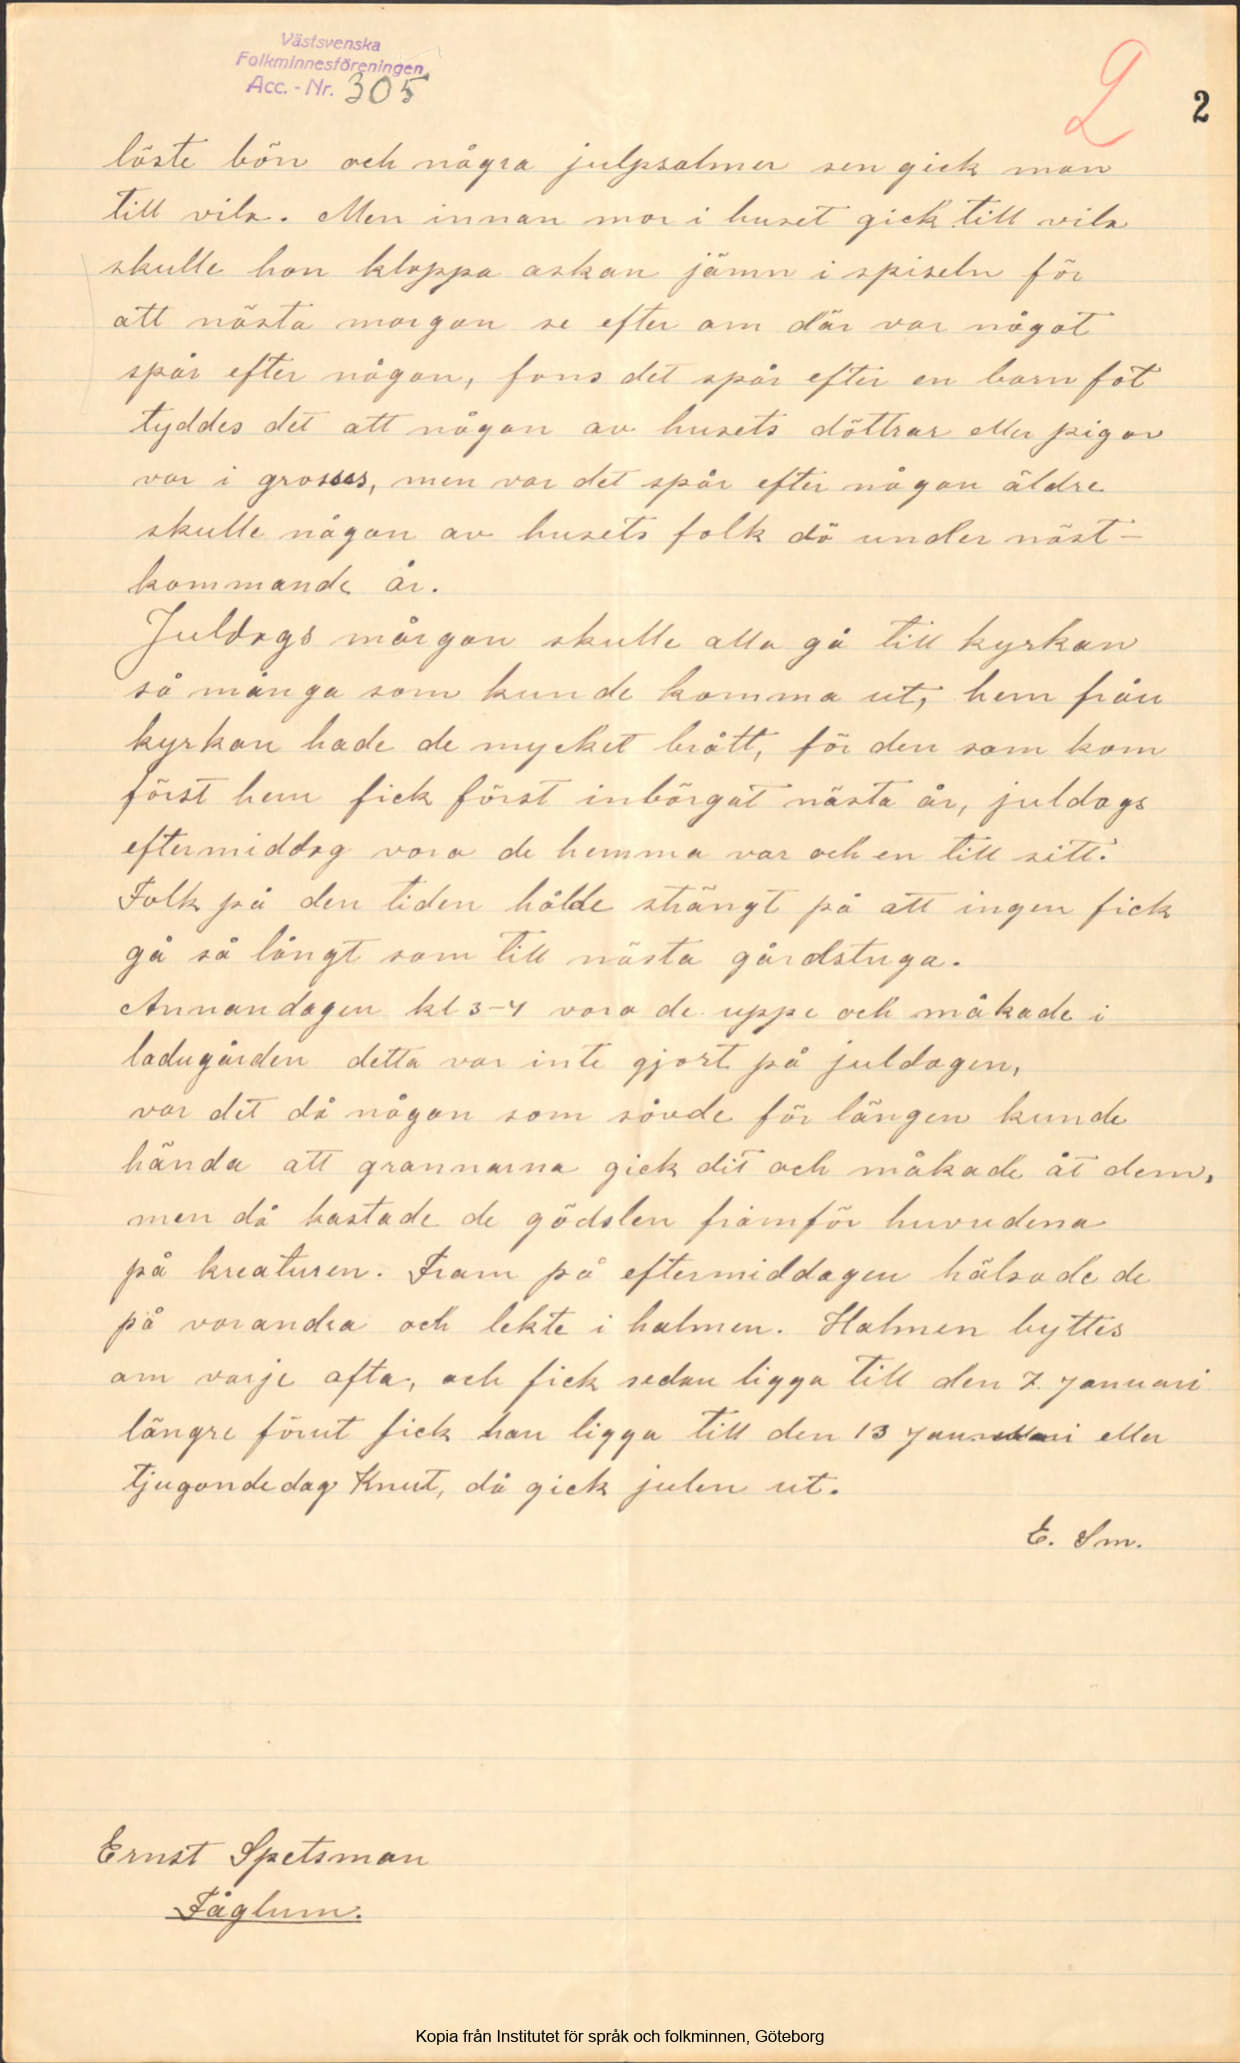 Västsvenska
Folkminnesföreningen
Acc. - Nr. 305
2
2
läste bön och några julpsalmer sen gick man
till vila. Men innan mor i huset gick till vila
skulle hon klappa askan jämn i spiseln för
att nästa morgon se efter om där var något
spår efter någon, fans det spår efter en barn fot
tyddes det att någon av husets döttrar eller pigor
var i grosses, men var det spår efter någon äldre
skulle någon av husets folk dö under näst-
kommande år.
Juldags mårgon skulle alla gå till kyrkan
så många som kunde komma ut, hem från
kyrkan hade de mycket brått, för den som kom
först hem fick först inbärgat nästa år, juldags
eftermiddag vora de hemma var och en till sitt.
Folk på den tiden hålde strängt på att ingen fick
gå så långt som till nästa gårdstuga.
Annandagen kl 3-4 vora de uppe och måkade i
ladugården detta var inte gjort på juldagen,
var det då någon som såvde för längen kunde
hända att grannarna gick dit och måkade åt dem,
men då kastade de gödslen framför huvudena
på kreaturen. Fram på eftermiddagen hälsade de
på varandra och lekte i halmen. Halmen byttes
om varje afta, och fick sedan ligga till den 7 januari
längre förut fick han ligga till den 13 januari eller
tjugondedag Knut, då gick julen ut.
E. Sm.
Ernst Spetsman
Fåglum.
Kopia från Institutet för språk och folkminnen, Göteborg